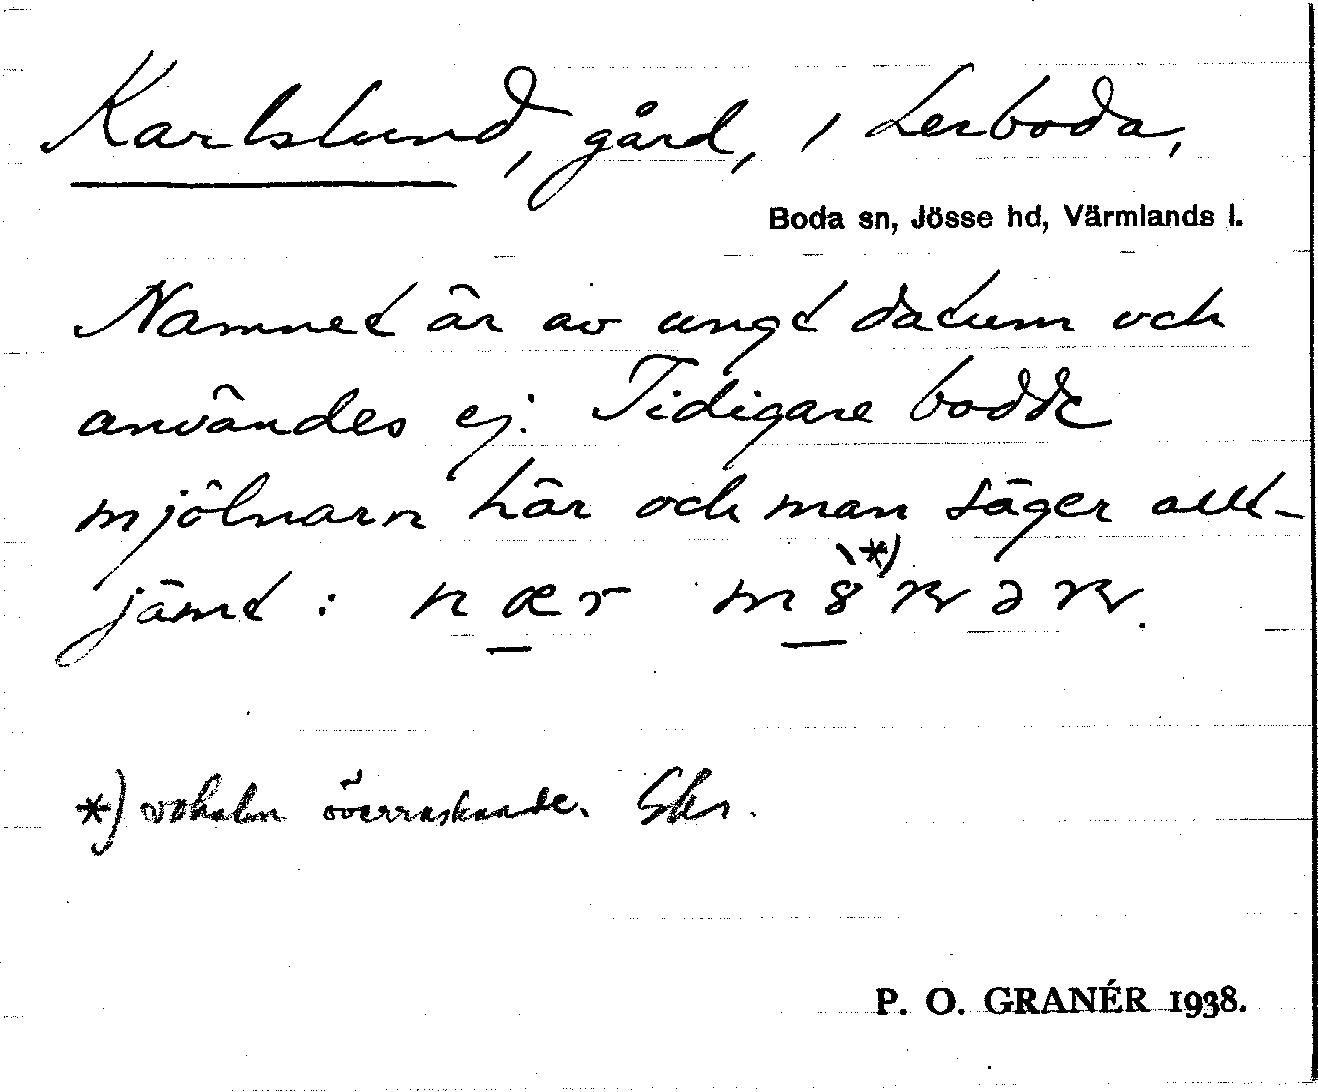 Karlslund, gård, i Lerboda,
Boda sn, Jösse hd, Värmlands l.
Namnet är av ungt datum och
användes ej. Tidigare bodde
mjölnarn här och man säger allt-
jämt : nær
*) vokalen överraskande. Skr.
P. O. GRANÉR 1938.